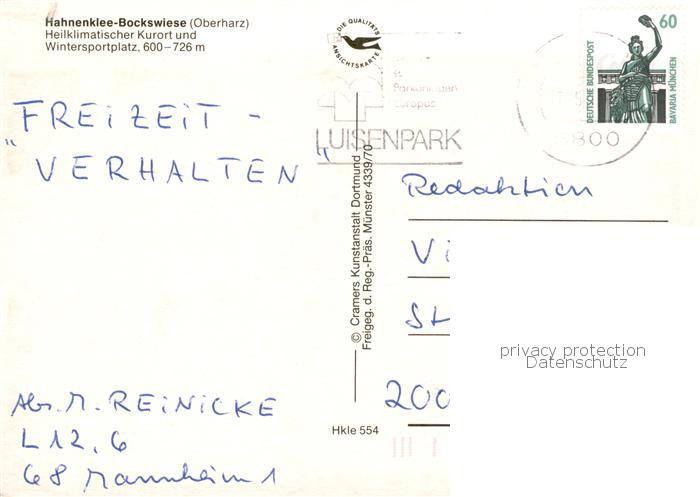 Hahnenklee-Bockswiese (Oberharz)
Heilklimatischer Kurort und
Wintersportplatz, 600–726 m
DIE QUALITÄTS
ANSICHTSKARTE
60
DEUTSCHE BUNDESPOST
BAVARIA MÜNCHEN
Parkanlagen
Europas
LUISENPARK
6800
FREiZEiT -
„VERHALTEN"
© Cramers Kunstanstalt Dortmund
Freigeg. d. Reg.-Präs. Münster 4339/70
Redaktion
Vi
St
200
privacy protection
Datenschutz
Abs. M. REiNiCKE
L 12, 6
68 Mannheim 1
Hkle 554